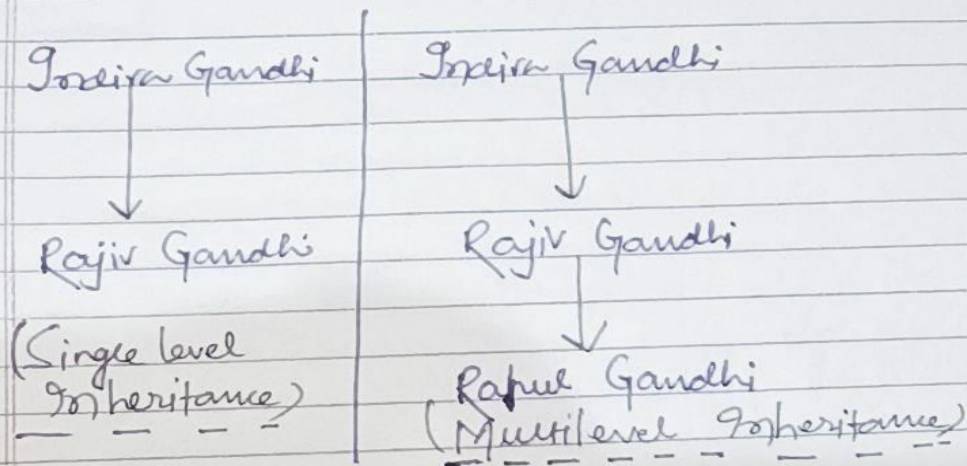 Indira Gandhi
Rajiv Gandhi
(Single level
Inheritance)
Indira Gandhi
Rajiv Gandhi
Rahul Gandhi
(Multilevel Inheritance)